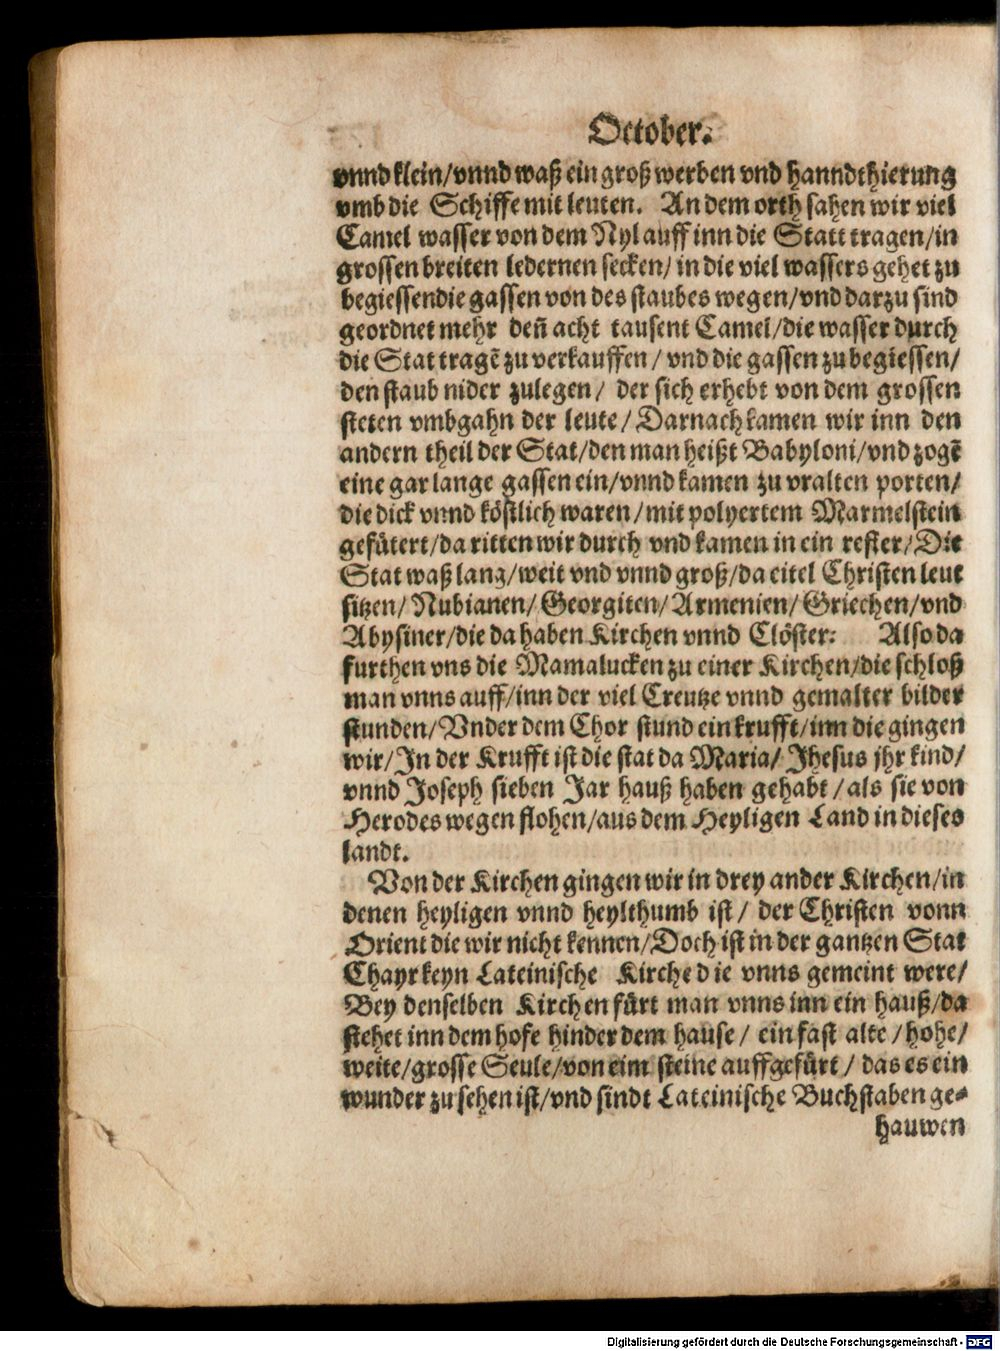 October.
vnnd klein/vnnd waß ein groß werben vnd hanndthierung
vmb die Schiffe mit leuten. An dem orth sahen wir viel
Camel wasser von dem Nyl auff inn die Statt tragen/in
grossen breiten ledernen secken/ in die viel wassers gehet zu
begiessendie gassen von des staubes wegen/vnd darzu sind
geordnet mehr deñ acht tausent Camel/die wasser durch
die Stat tragẽ zu verkauffen/ vnd die gassen zu begiessen/
den staub nider zulegen/ der sich erhebt von dem grossen
steten vmbgahn der leute/ Darnach kamen wir inn den
andern theil der Stat/den man heißt Babyloni/vnd zogẽ
eine gar lange gassen ein/vnnd kamen zu vralten porten/
die dick vnnd köstlich waren/mit polyertem Marmelstein
gefütert/da ritten wir durch vnd kamen in ein refier/Die
Stat waß lang/weit vnd vnnd groß/da eitel Christen leut
sitzen/ Nubianen/ Georgiten/ Armenien/ Griechen/vnd
Abysiner/die da haben Kirchen vnnd Clöster: Also da
furthen vns die Mamalucken zu einer Kirchen/die schloß
man vnns auff/inn der viel Creutze vnnd gemalter bilder
stunden/Vnder dem Chor stund ein krufft/inn die gingen
wir/In der Krufft ist die stat da Maria/ Jhesus jhr kind/
vnnd Joseph sieben Jar hauß haben gehabt/als sie von
Herodes wegen flohen/aus dem Heyligen Land in dieses
landt.
Von der Kirchen gingen wir in drey ander Kirchen/in
denen heyligen vnnd heylthumb ist/ der Christen vonn
Orient die wir nicht kennen/Doch ist in der gantzen Stat
Chayr keyn Lateinische Kirche die vnns gemeint were/
Bey denselben Kirchen fürt man vnns inn ein hauß/da
stehet inn dem hofe hinder dem hause/ ein fast alte/hohe/
weite/grosse Seule/von eim steine auffgefürt/ das es ein
wunder zu sehen ist/vnd sindt Lateinische Buchstaben ge-
hauwen
Digitalisierung gefördert durch die Deutsche Forschungsgemeinschaft - DFG